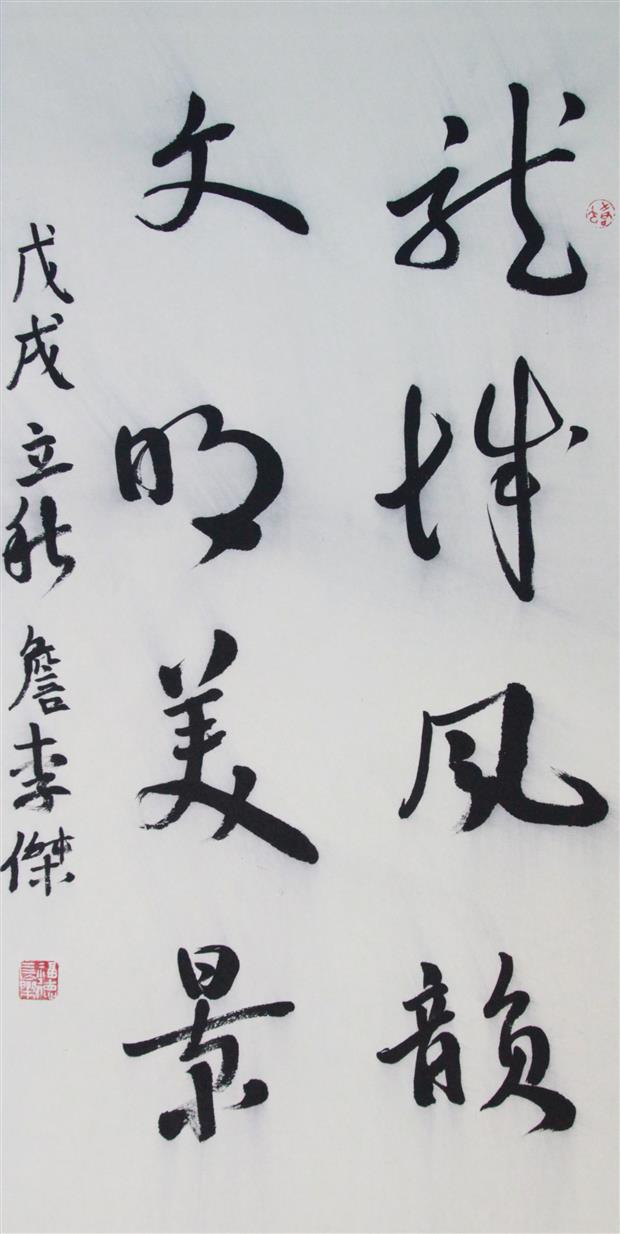 龍城风韻
文明美景
戊戌立秋詹李傑